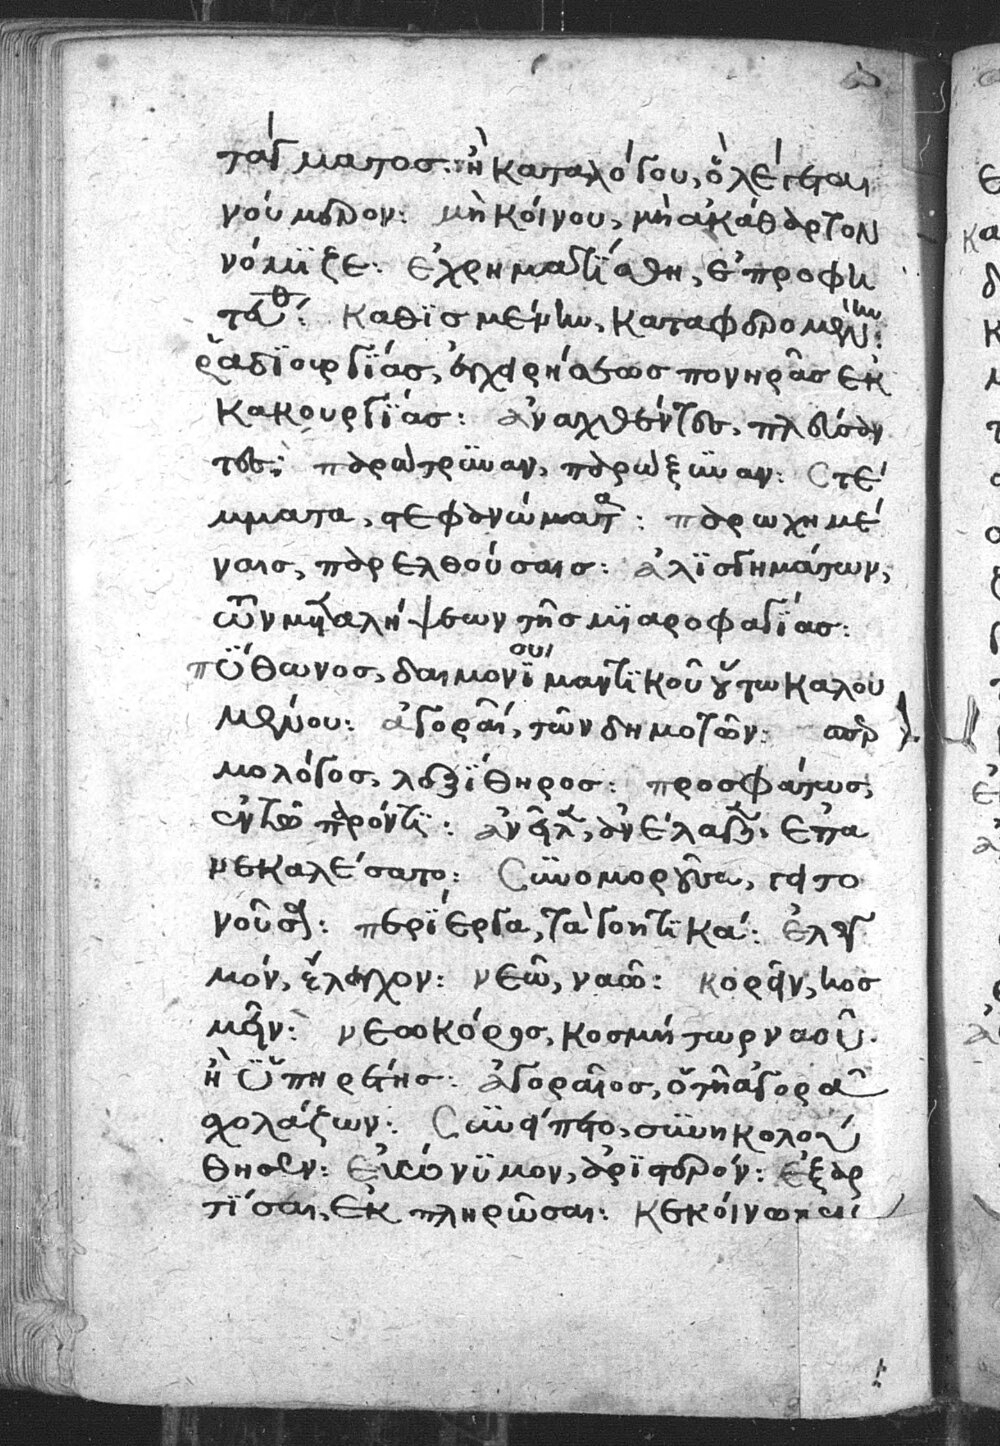 τάγματος· ἢ καταλόγου, ὃ λέγεται
νούμερον: μὴ κοίνου, μὴ ἀκάθαρτον
νόμϊζε: ἐχρηματίσθη, ἐπροφη
τεύθ: καθϊσμένην, καταφερομένην:
ῥαδϊουργΐας, εὐχεροῦς πονηρᾶς ἐκ
κακουργΐας: ἀναχθέντες, πλεύσαν
τες: παρώτρϋναν, παρώξϋναν: Στέ
μματα, στεφανώματα: παρωχημέ
ναις, παρελθούσαις: ἀλϊσγημάτων,
τῶν μεταλήψεων τῆς μϊαροφαγΐας:
πΰθωνος, δαιμονΐου μαντϊκοῦ οὕτω καλου
μένου: ἀγοραῖοι, τῶν δημοτῶν: σπερ
μολόγος, λεξϊθηρος: προσφάτως,
ἐν τῶ παρόντϊ: ἀνεῖλεν, ἀνέλαβεν, ἐπα
νεκαλέσατο: Συνομοροῦσα, γειτο
νοῦσα: περΐεργα, τὰ γοητϊκά: ἐλεγ
μόν, ἔλεγχον: νεῶ, ναοῦ: κορεῖν, κοσ
μεῖν: νεωκόρος, κοσμήτωρ ναοῦ.
ἢ ὑπηρέτης: ἀγοραῖος, ὁ τῆ ἀγορᾶ
σχολάζων: Συνείπετο, συνηκολού
θησεν: εὐώνϋμον, ἀρϊστερόν: ἐξαρ
τΐσαι, ἐκπληρῶσαι: κεκοίνωκεν